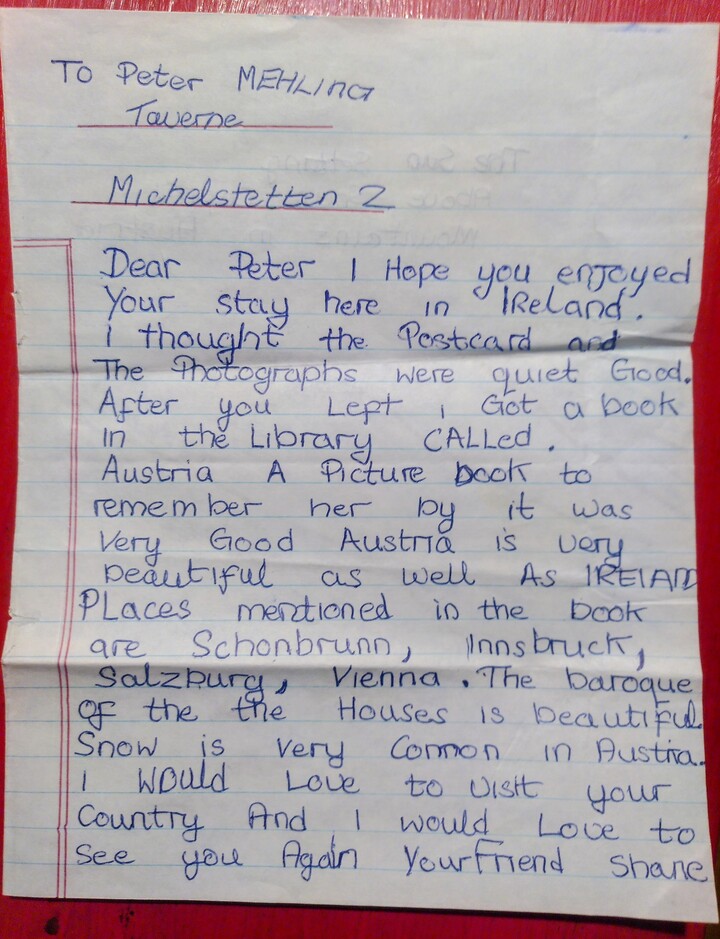 To Peter MEHLING
Taverne
Michelstetten 2
Dear Peter I Hope you enjoyed
Your stay here in IReland.
i thought the Postcard and
The Photographs were quiet Good.
After you Left i Got a book
in the Library CALLed.
Austria A Picture book to
remember her by it was
Very Good Austria is very
beautiful as well As IRElAND
PLaces mentioned in the book
are Schonbrunn, Innsbruck,
Salzburg, Vienna. The baroque
OF the the Houses is beautiful
Snow is very Common in Austria.
I WOULd Love to visit your
Country And I would Love to
See you Again Your Friend Shane